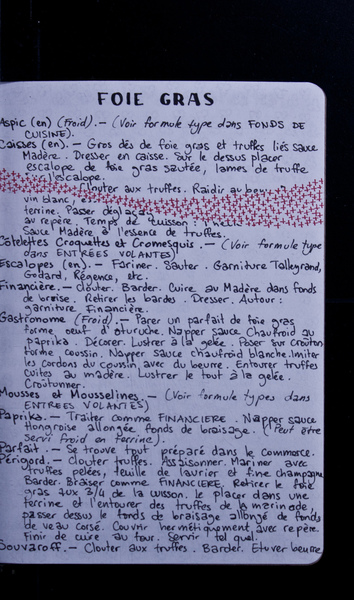 FOIE GRAS
Aspic (en) (Froid).- (Voir formule type dans FONDS DE
CUISINE).
Caisses (en).- Gros dés de foie gras et truffes liés sauce
Madère. Dresser en caisse. Sur le dessus placer
escalope de foie gras sautée, lames de truffe
l'escalope.
Clouter aux truffes. Raidir au
vin blanc,
terrine. Passer
au repère. Temps de cuisson
Sauce Madère à l'essence de truffes.
Côtelettes Croquettes et Cromesquis.- (Voir formule type
dans ENTREES VOLANTES)
Escalopes (en).- Fariner. Sauter. Garniture Talleyrand,
Godard, Régence, etc.
Financière.- Clouter. Barder. Cuire au Madère dans fonds
de braise. Retirer les bardes. Dresser. Autour:
garniture Financière.
Gastronome (Froid).- Parer un parfait de foie gras
forme oeuf d'autruche. Napper sauce Chaufroid au
paprika. Décorer. Lustrer à la gelée. Poser sur Croûton
forme coussin. Napper sauce chaufroid blanche. Imiter
les cordons du coussin, avec du beurre. Entourer truffes
cuites au madère. Lustrer le tout à la gelée.
Croûtonner.
Mousses et Mousselines.- (Voir formule types dans
ENTREES VOLANTES)
Paprika.- Traiter comme FINANCIERE. Napper sauce
Hongroise allongée fonds de braisage. (Peut être
servi froid en terrine).
Parfait.- Se trouve tout préparé dans le commerce.
Périgord.- Clouter truffes. Assaisonner. Mariner avec
truffes pelées, feuille de laurier et fine champagne
Barder. Braiser comme FINANCIERE. Retirer le foie
gras aux 3/4 de la cuisson. le placer dans une
terrine et l'entourer des truffes de la marinade,
passer dessus le fonds de braisage allongé de fonds
de veau corsé. Couvrir hermétiquement, avec repère.
Finir de cuire au four. Servir tel quel.
Souvaroff.- Clouter aux truffes. Barder. Etuver beurre